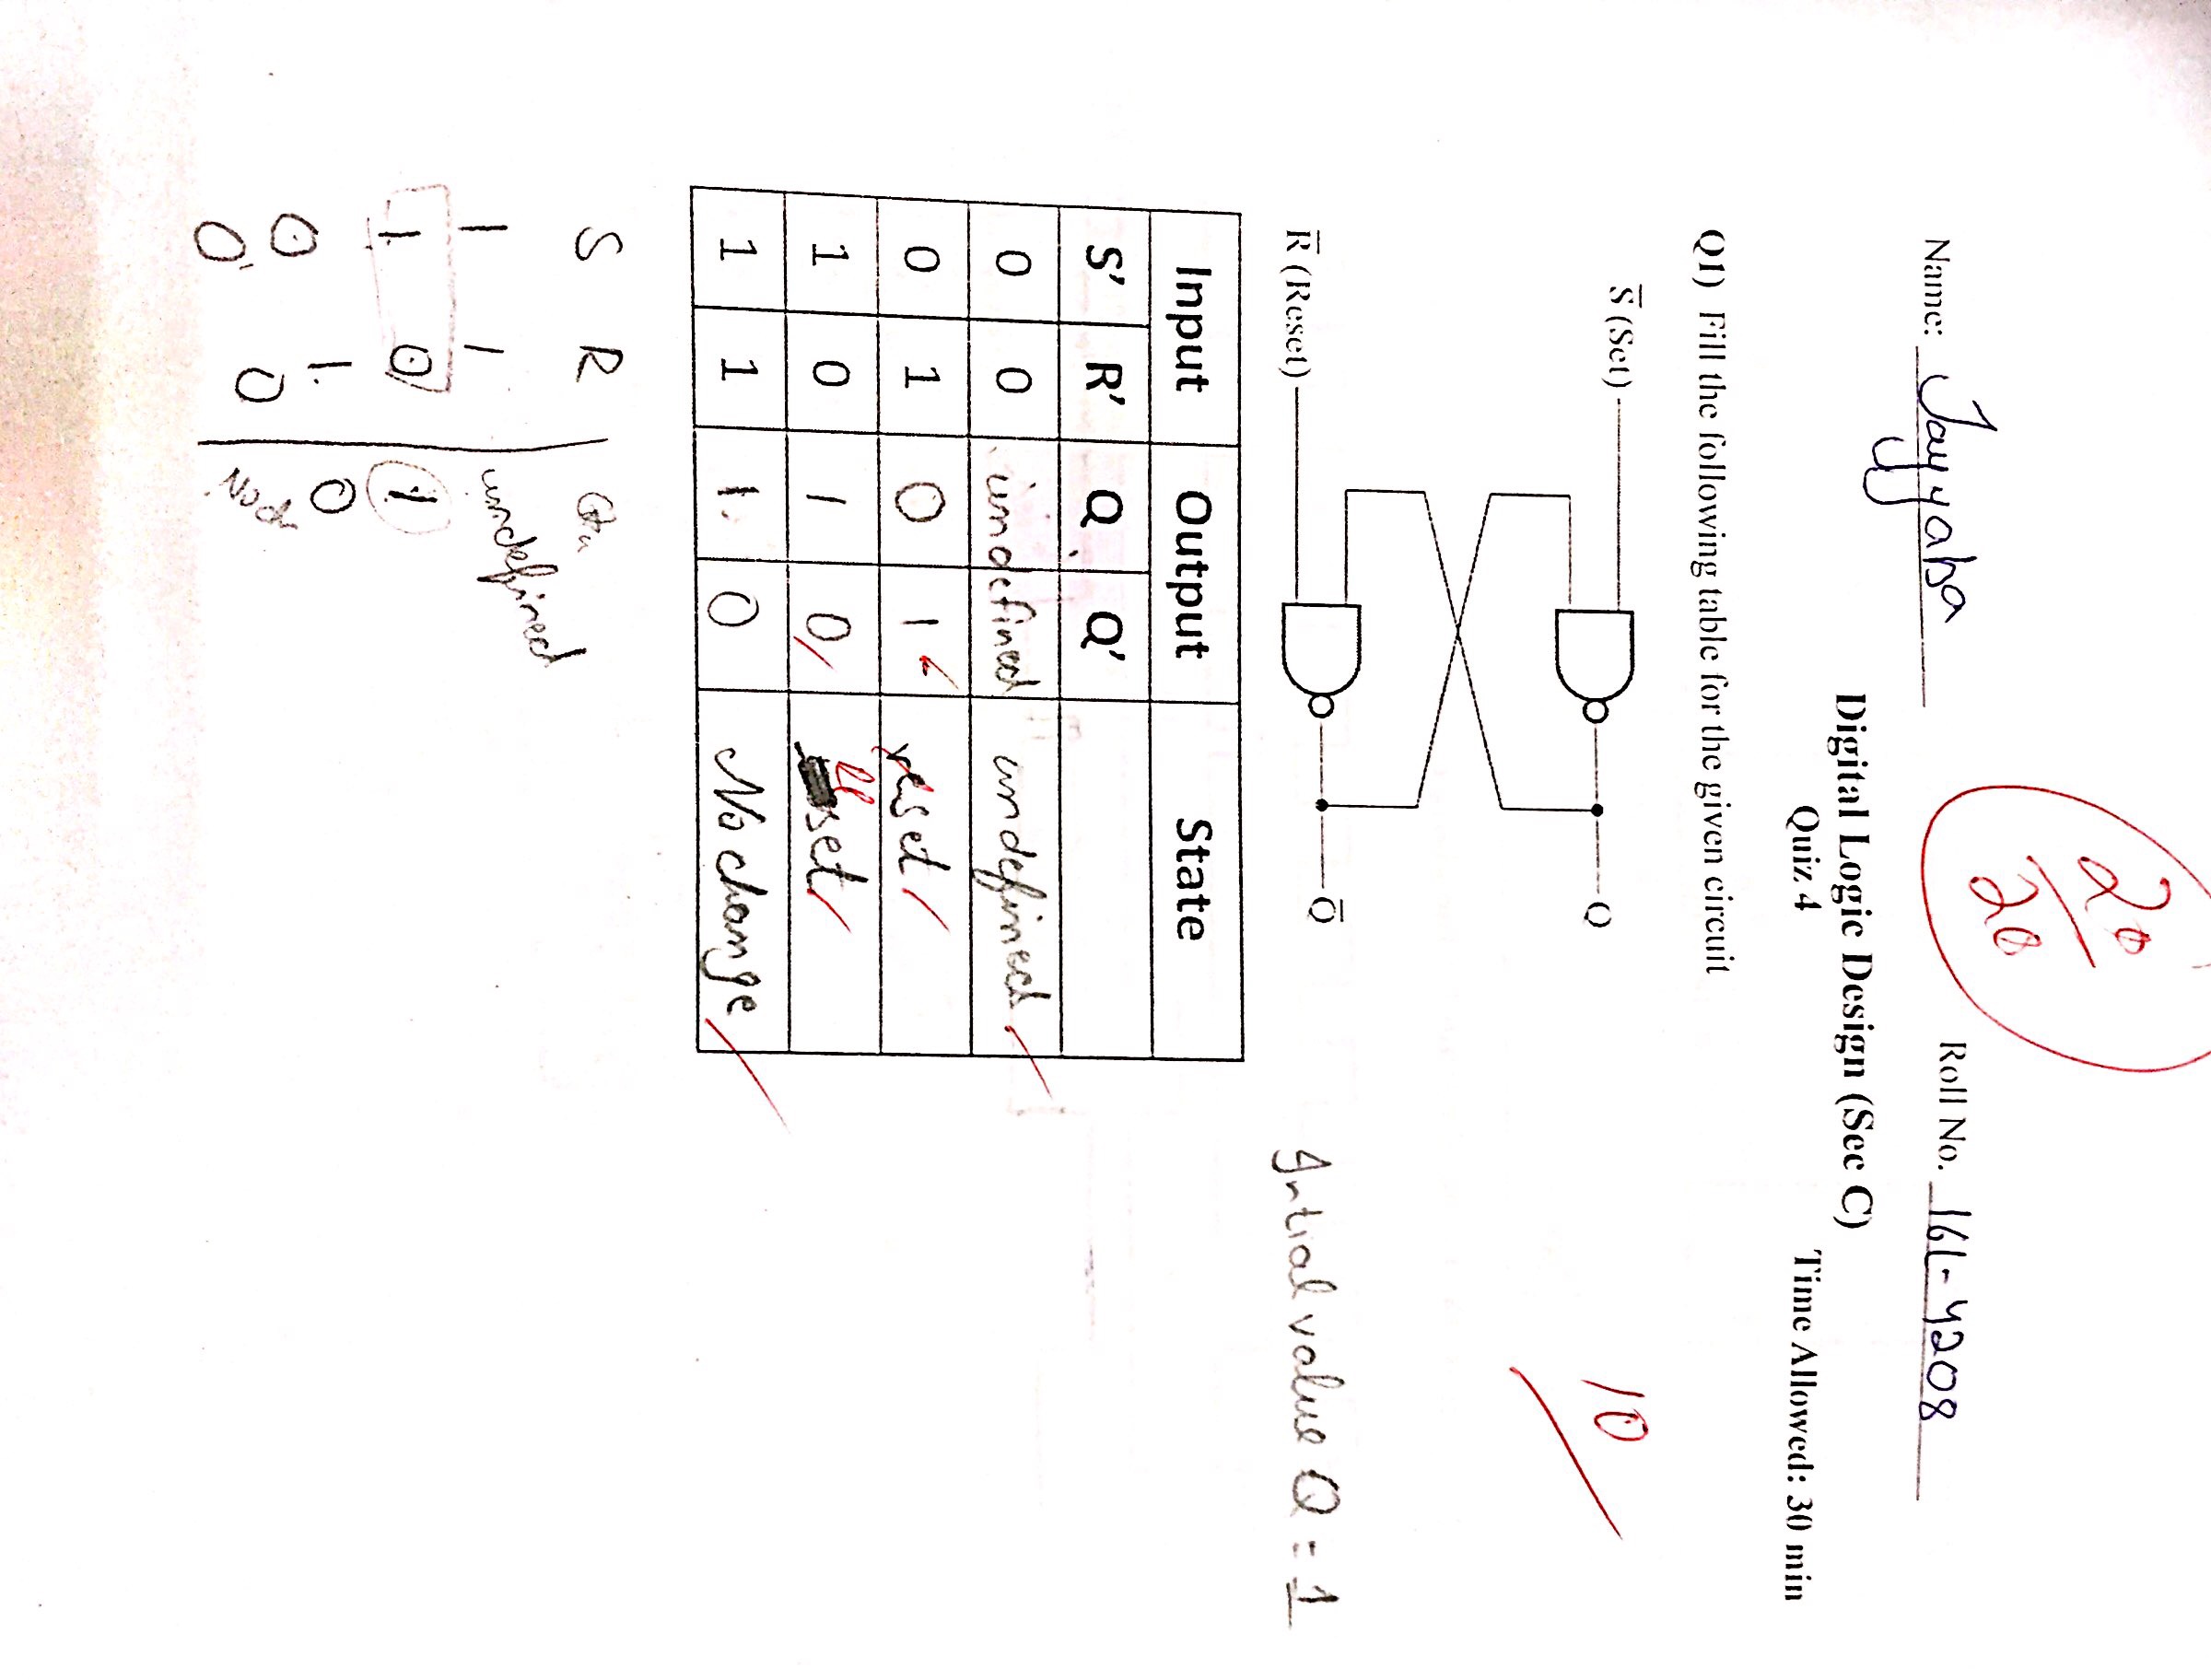 20/20
Name: Tayyaba Roll No. 16L-4208
Digital Logic Design (Sec C)
Quiz 4 Time Allowed: 30 min
Q1) Fill the following table for the given circuit
10
S̅ (Set) Q
R̅ (Reset) Q̅
Intial value Q = 1
Input Output State
S' R' Q Q'
0 0 undefined undefined
0 1 0 1 reset
1 0 1 0 set
1 1 1 0 No change
S R
1 1 undefined
1 0 1
0 1 0
0 0